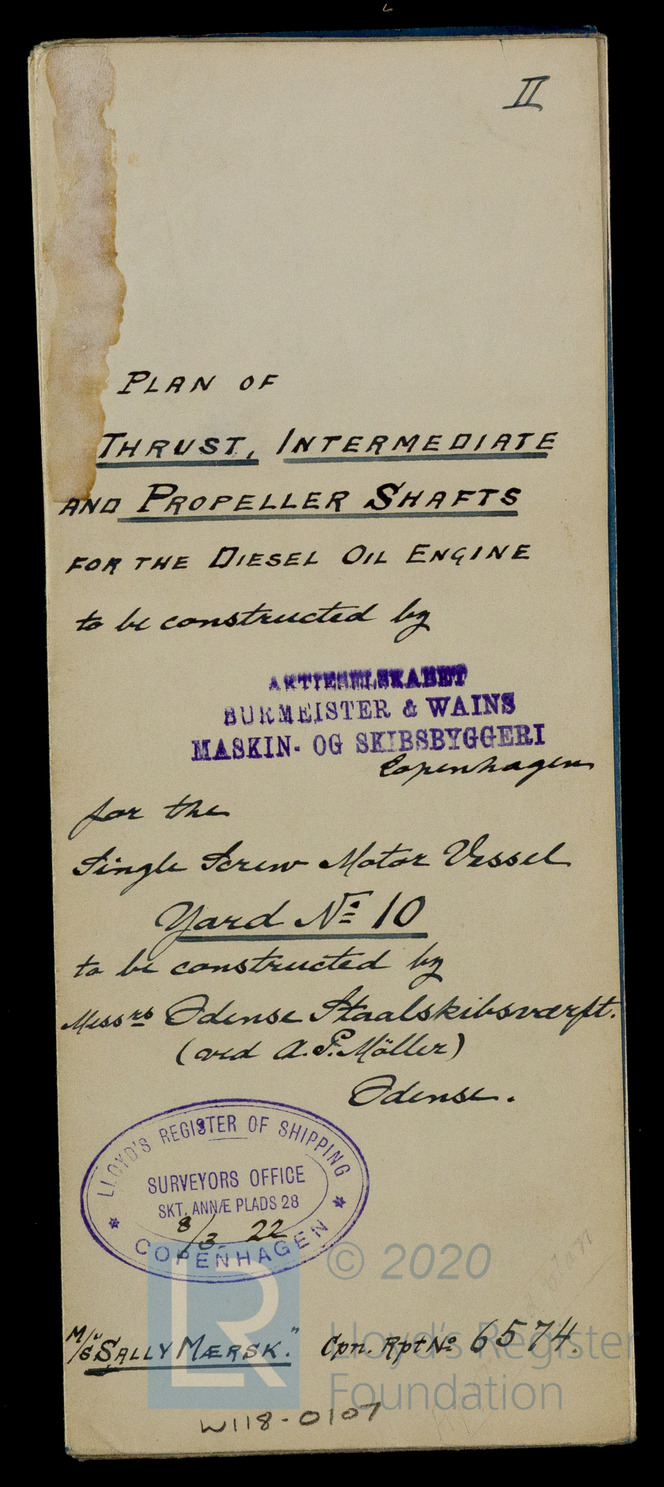 II
PLAN OF
THRUST, INTERMEDIATE
AND PROPELLER SHAFTS
FOR THE DIESEL OIL ENGINE
to be constructed by
AKTIESELSKABET
BURMEISTER & WAINS
MASKIN- OG SKIBSBYGGERI
Copenhagen
for the
Single Screw Motor Vessel
Yard No: 10
to be constructed by
Messrs Odense Staalskibsværft.
(ved A. P. Möller)
Odense.
LLOYD'S REGISTER OF SHIPPING
SURVEYORS OFFICE
SKT. ANNÆ PLADS 28
8/3. 22
COPENHAGEN
© 2020
LR
Lloyd's Register
Foundation
M/S "SALLY MÆRSK." Cpn. Rpt No 6574.
W118-0107